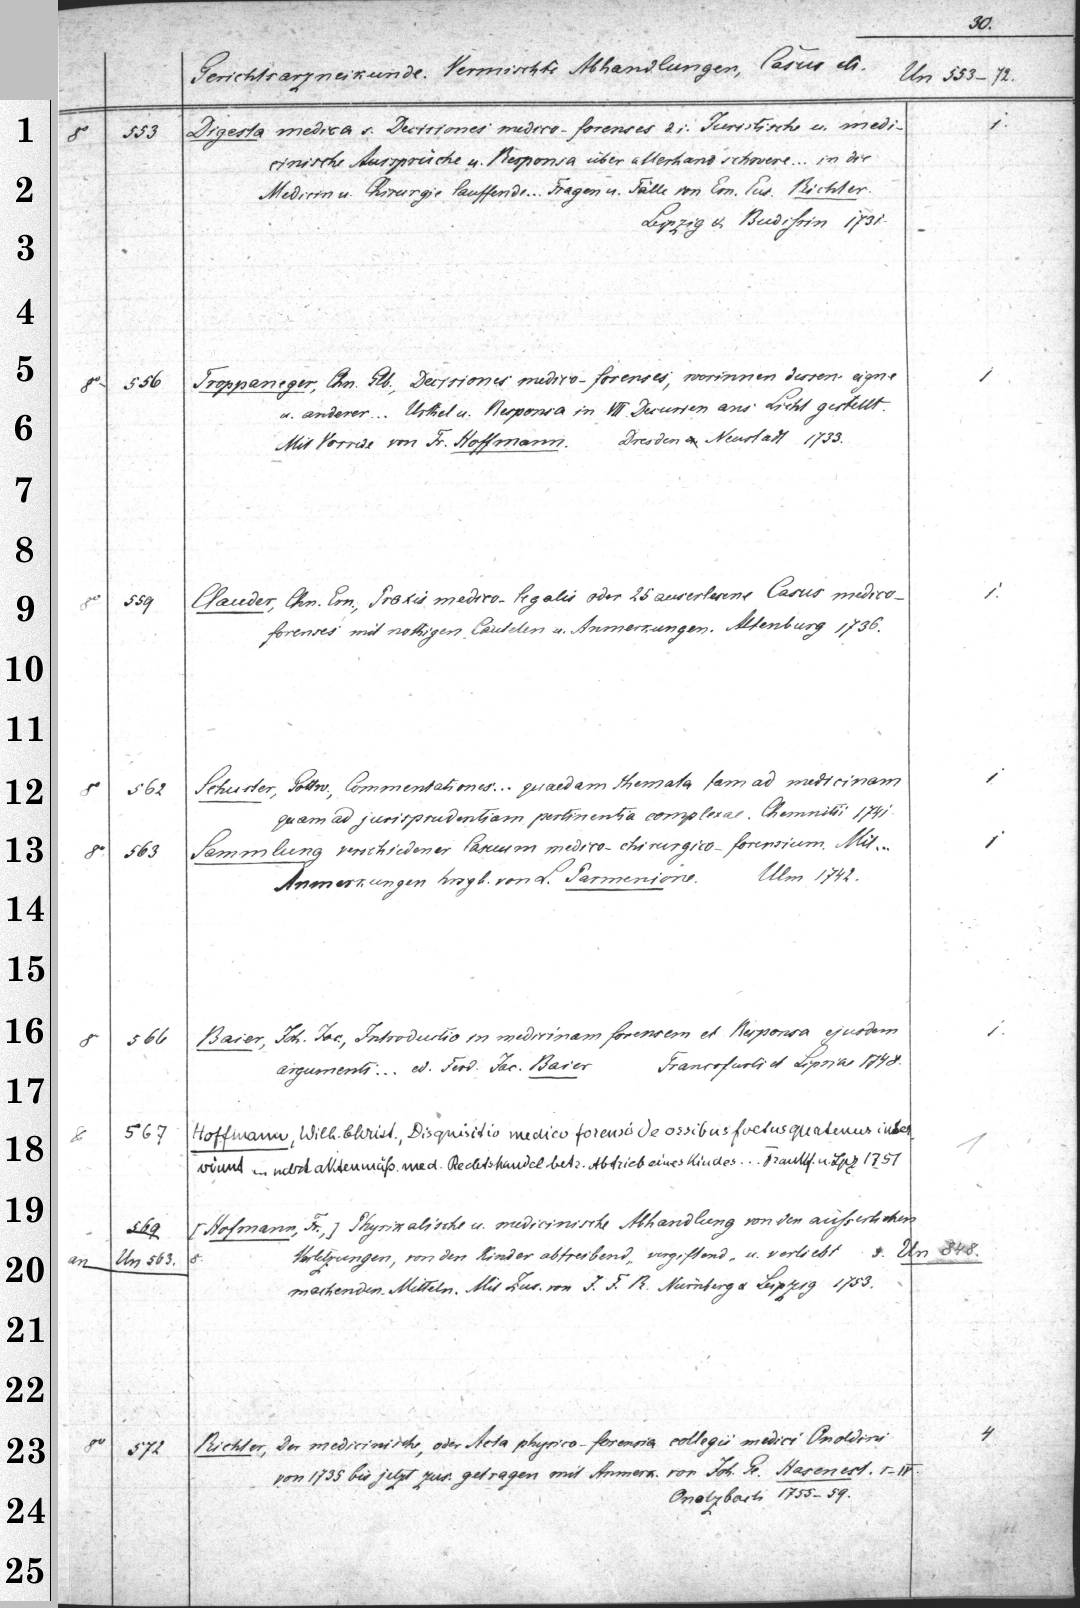 30.
Gerichtsarzneikunde. Vermischte Abhandlungen, Casus etc. Un 553–72.
1
8° 553 Digesta medica s. Decisiones medico-forenses d. i. Juristische u. medi- 1.
cinische Aussprüche u. Responsa über allerhand schwere... in die
2
Medicin u. Chirurgie lauffende... Fragen u. Fälle von Ern. Eus. Richter.
Leipzig & Budissin 1731.
3
4
5
8° 556 Troppaneger, Chn. Glb., Decisiones medico-forenses, worinnen dessen eigne 1
u. anderer... Urthel u. Responsa in VII Decurien ans Licht gestellt.
6
Mit Vorrede von Fr. Hoffmann. Dresden & Neustadt 1733.
7
8
9
8° 559 Clauder, Chn. Ern., Praxis medico-legalis oder 25 auserlesene Casus medico- 1.
forenses mit nothigen Cautelen u. Anmerkungen. Altenburg 1736.
10
11
12
8° 562 Schuster, Gottw., Commentationes... quaedam themata tam ad medicinam 1
quam ad jurisprudentiam pertinentia complexae. Chemnitii 1741
13
8° 563 Sammlung verschiedener Casuum medico-chirurgico-forensium. Mit... 1
Anmerkungen hrsgb. von L. Parmenione. Ulm 1742.
14
15
16
8° 566 Baier, Joh. Jac., Introductio in medicinam forensem et Responsa ejusdem 1.
argumenti... ed. Ferd. Jac. Baier Francofurti et Lipsiae 1748.
17
8° 567 Hoffmann, Wilh. Christ., Disquisitio medico forensis de ossibus foetus quatenus inser 1
18
viunt ... nebst aktenmäß. med. Rechtshandel betr. Abtrieb eines Kindes... Frankf. u. Lpz 1751
19
569 [Hofmann, Fr.,] Physikalische u. medicinische Abhandlung von den äusserlichen
an Un 563. 8. Verletzungen, von den Kinder abtreibend., vergiftend., u. verliebt s. Un 848.
20
machenden Mitteln. Mit Zus. von J. F. R. Nürnberg & Leipzig 1753.
21
22
23
8° 572 Richter, Der medicinische, oder Acta physico-forensia collegii medici Onoldini 4
von 1735 bis jetzt zus. getragen mit Anmerk. von Joh. Ge. Hasenest. I–IV.
24
Onolzbach 1755–59.
25